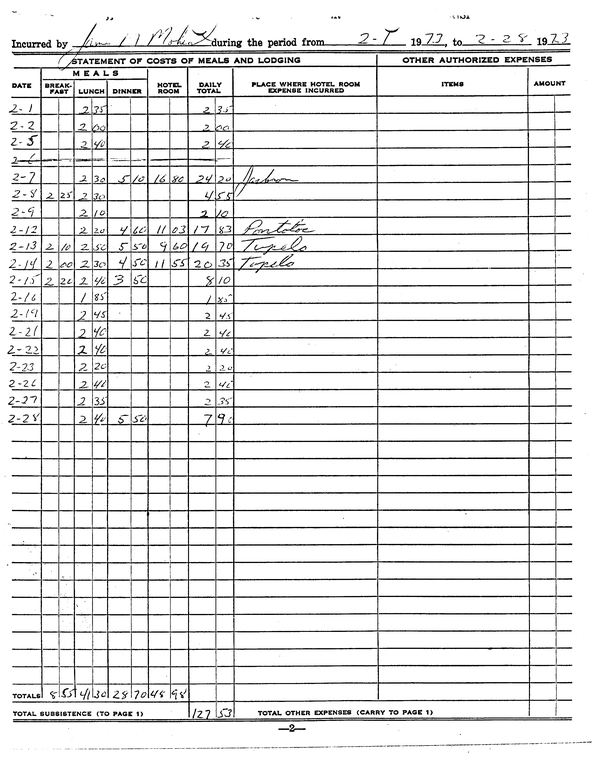 Incurred by James during the period from 2-1 1973, to 2-28 1973
STATEMENT OF COSTS OF MEALS AND LODGING OTHER AUTHORIZED EXPENSES
MEALS
DATE BREAK-FAST LUNCH DINNER HOTEL ROOM DAILY TOTAL PLACE WHERE HOTEL ROOM EXPENSE INCURRED ITEMS AMOUNT
2-1 2 35 2 35
2-2 2 00 2 00
2-5 2 40 2 40
2-6
2-7 2 30 5 10 16 80 24 20 Jackson
2-8 2 25 2 30 4 55
2-9 2 10 2 10
2-12 2 20 4 60 11 03 17 83 Pontotoc
2-13 2 10 2 50 5 50 9 60 19 70 Tupelo
2-14 2 00 2 30 4 50 11 55 20 35 Tupelo
2-15 2 20 2 40 3 50 8 10
2-16 1 85 1 85
2-19 2 45 2 45
2-21 2 40 2 40
2-22 2 40 2 40
2-23 2 20 2 20
2-26 2 40 2 40
2-27 2 35 2 35
2-28 2 40 5 50 7 90
TOTALS 8 55 41 30 28 70 48 98
TOTAL SUBSISTENCE (TO PAGE 1) 127 53 TOTAL OTHER EXPENSES (CARRY TO PAGE 1)
—2—